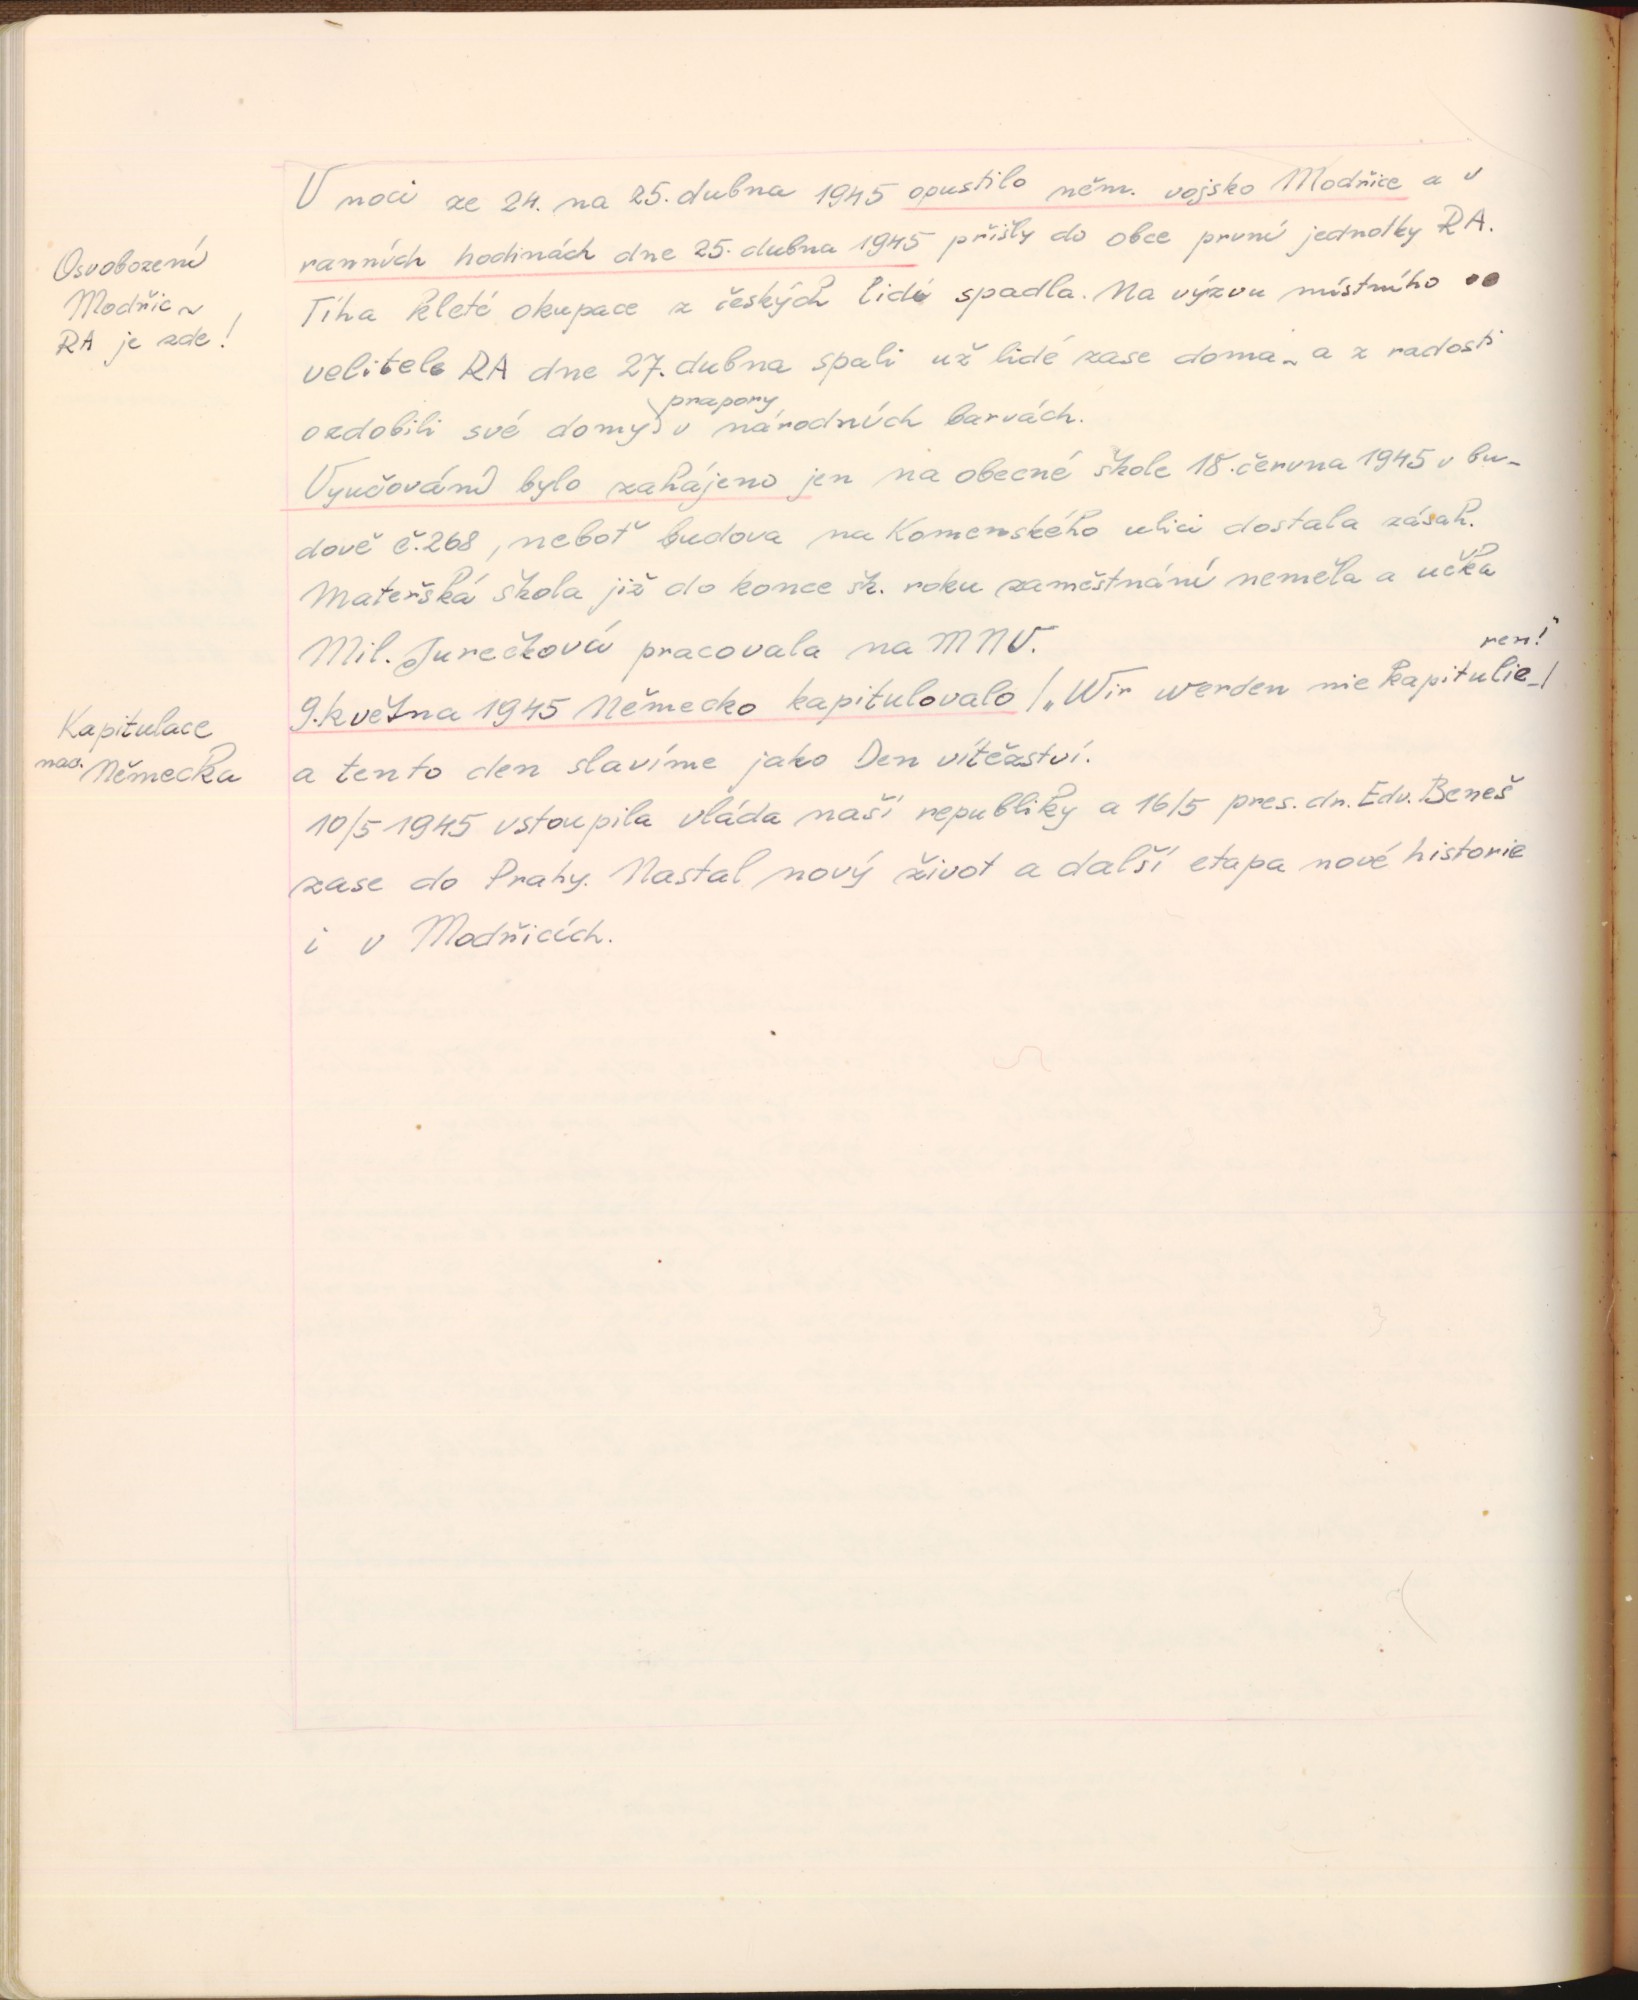 V noci ze 24. na 25. dubna 1945 opustilo něm. vojsko Modřice a v
ranních hodinách dne 25. dubna 1945 přišly do obce první jednotky RA.
Osvobození
Modřic ~
RA je zde!
Tíha kleté okupace z českých lidí spadla. Na výzvu místního
velitele RA dne 27. dubna spali už lidé zase doma ~ a z radosti
prapory
ozdobili své domy v národních barvách.
Vyučování bylo zahájeno jen na obecné škole 18. června 1945 v bu-
dově č. 268, neboť budova na Komenského ulici dostala zásah.
Mateřská škola již do konce šk. roku zaměstnání neměla a učka
Mil. Jurečková pracovala na MNV.
ren!"
9. května 1945 Německo kapitulovalo /„Wir werden nie kapitulie-/
Kapitulace
nac. Německa
a tento den slavíme jako Den vítězství.
10/5 1945 vstoupila vláda naší republiky a 16/5 pres. dr. Edv. Beneš
zase do Prahy. Nastal nový život a další etapa nové historie
i v Modřicích.